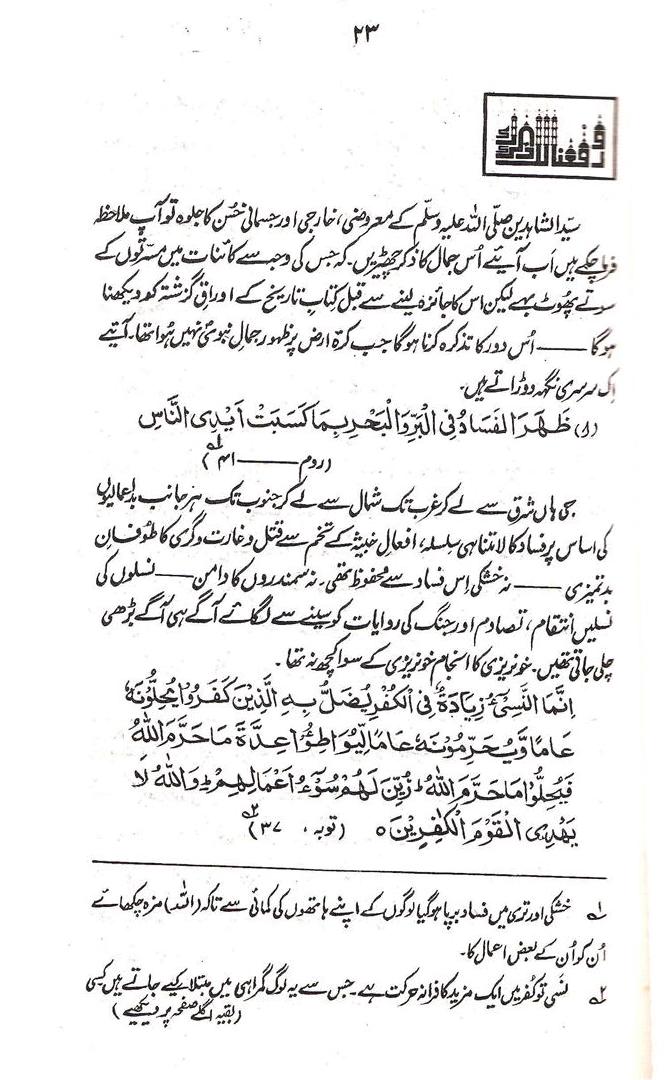 ۲۳
ورفعنا لک ذکرک
سیّد الشاہدین صلّی اللہ علیہ وسلّم کے معروضی، خارجی اور جسمانی حُسن کا جلوہ تو آپ ملاحظہ
فرما چکے ہیں اَب آیئے اُس جمال کا ذکر چھیڑیں۔ کہ جس کی وجہ سے کائنات میں مسرّتوں کے
سوتے پھُوٹ بہے لیکن اس کا جائزہ لینے سے قبل کتابِ تاریخ کے اوراقِ گزشتہ کو دیکھنا
ہوگا ــــــ اُس دور کا تذکرہ کرنا ہوگا جب کرّۂ ارض پر ظہور جمالِ نبویؐ نہیں ہُوا تھا۔ آیئے
اِک سرسری نگہہ دوڑاتے ہیں۔
(۱) ظَهَرَ الْفَسَادُ فِی الْبَرِّ وَالْبَحْرِ بِمَا كَسَبَتْ اَیْدِی النَّاسِ
(روم ــــــ ۴۱) ؎۱
جی ہاں شرق سے لے کر غرب تک شمال سے لے کر جنوب تک ہر جانب بداعمالیوں
کی اساس پر فساد کا لامتناہی سلسلہ، افعالِ خبیثہ کے تخم سے قتل و غارت و گری کا طوفانِ
بدتمیزی ــــــ نہ خشکی اِس فساد سے محفوظ تھی۔ نہ سمندروں کا دامن ــــــ نسلوں کی
نسلیں انتقام، تصادم اور جنگ کی روایات کو سینے سے لگائے آگے ہی آگے بڑھی
چلی جاتی تھیں۔ خونریزی کا انجام خونریزی کے سوا کچھ نہ تھا۔
اِنَّمَا النَّسِیْٓءُ زِیَادَةٌ فِی الْكُفْرِ یُضَلُّ بِهِ الَّذِیْنَ كَفَرُوْا یُحِلُّوْنَهٗ
عَامًا وَّیُحَرِّمُوْنَهٗ عَامًا لِّیُوَاطِـُٔوْا عِدَّةَ مَا حَرَّمَ اللّٰهُ
فَیُحِلُّوْا مَا حَرَّمَ اللّٰهُ ؕ زُیِّنَ لَهُمْ سُوْٓءُ اَعْمَالِهِمْ ؕ وَاللّٰهُ لَا
یَهْدِی الْقَوْمَ الْكٰفِرِیْنَ ہ (توبہ، ۳۷) ؎۲
؎۱ خشکی اور تری میں فساد برپا ہوگیا لوگوں کے اپنے ہاتھوں کی کمائی سے تاکہ (اللہ) مزہ چکھائے
اُن کو اُن کے بعض اعمال کا۔
؎۲ نسَی تو کُفر میں ایک مزید کافرانہ حرکت ہے۔ جس سے یہ لوگ گمراہی میں مبتلا کیے جاتے ہیں کسی
(بقیہ اگلے صفحہ پر دیکھیے)